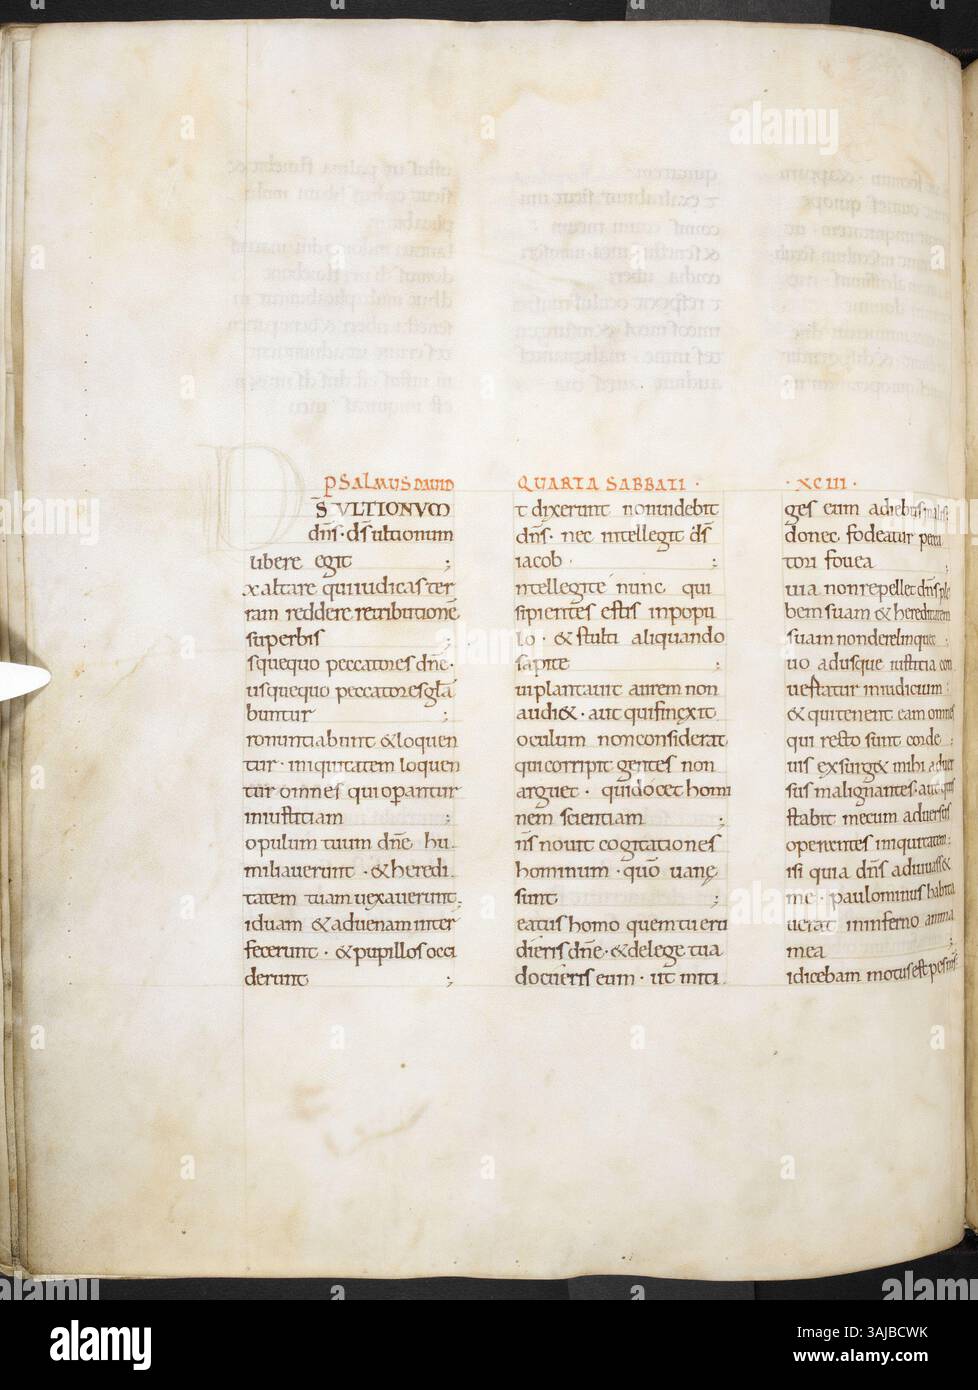 PSALMUS DAVID
S̄ ULTIONUM
dn̄s · ds̄ ultionum
libere egit ;
xaltare qui iudicas ter
ram reddere retributionē
superbis ;
squequo peccatores dn̄e ·
usquequo peccatores gl̄a
buntur ;
ronuntiabunt & loquen
tur · iniquitatem loquen
tur omnes qui operantur
iniustitiam ;
opulum tuum dn̄e hu
miliauerunt · & heredi
tatem tuam uexauerunt ;
iduam & aduenam inter
fecerunt · & pupillos occi
derunt ;
QUARTA SABBATI ·
t dixerunt non uidebit
dn̄s · nec intellegit ds̄
iacob · ;
ntellegite nunc qui
sipientes estis in popu
lo · & stulti aliquando
sapite ;
ui plantauit aurem non
audi& · aut qui finęxit
oculum non considerat
qui corripit gentes non
arguet · qui docet homi
nem scientiam ;
n̄s nouit cogitationes
hominum · quō uanę
sunt ;
eatus homo quem tu eru
dieris dn̄e · & de lege tua
docueris eum · ut miti
· XCIII ·
ges eum a diebus malis
donec fodeatur pecca
tori fouea ;
uia non repellet dn̄s ple
bem suam & hereditatem
suam non derelinquet ;
uo adusque iustitia con
uertatur in iudicium
& qui tenent eam omnes
qui recto sunt corde
uis exsurg& mihi aduer
sus malignantes aut quis
stabit mecum aduersus
operentes iniquitatem
isi quia dn̄s adiuuass&
me · paulominus habita
uerat in inferno anima
mea ;
i dicebam motus est pes meus
alamy
Image ID: 3AJBCWK
www.alamy.com